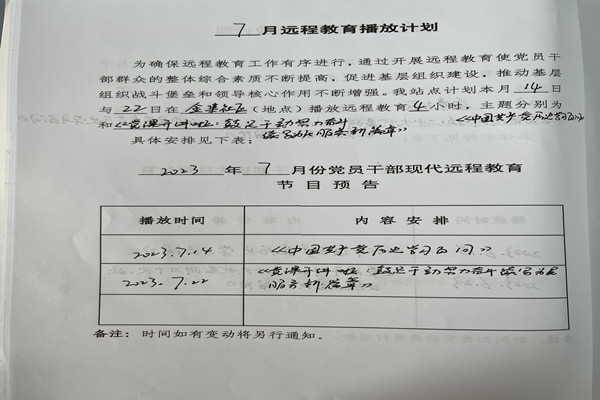 7 月远程教育播放计划
为确保远程教育工作有序进行，通过开展远程教育使党员干
部群众的整体综合素质不断提高，促进基层组织建设，推动基层
组织战斗堡垒和领导核心作用不断增强。我站点计划本月 14 日
与 22 日在 金 社区（地点）播放远程教育 4 小时，主题分别为
《中国共产党历史学习百问》
和《党课开讲啦：
服务新篇章》
具体安排见下表：
2023 年 7 月份党员干部现代远程教育
节目预告
播放时间 内容安排
2023.7.14 《中国共产党历史学习百问》
2023.7.22 《党课开讲啦：
服务新篇章》
备注：时间如有变动将另行通知。